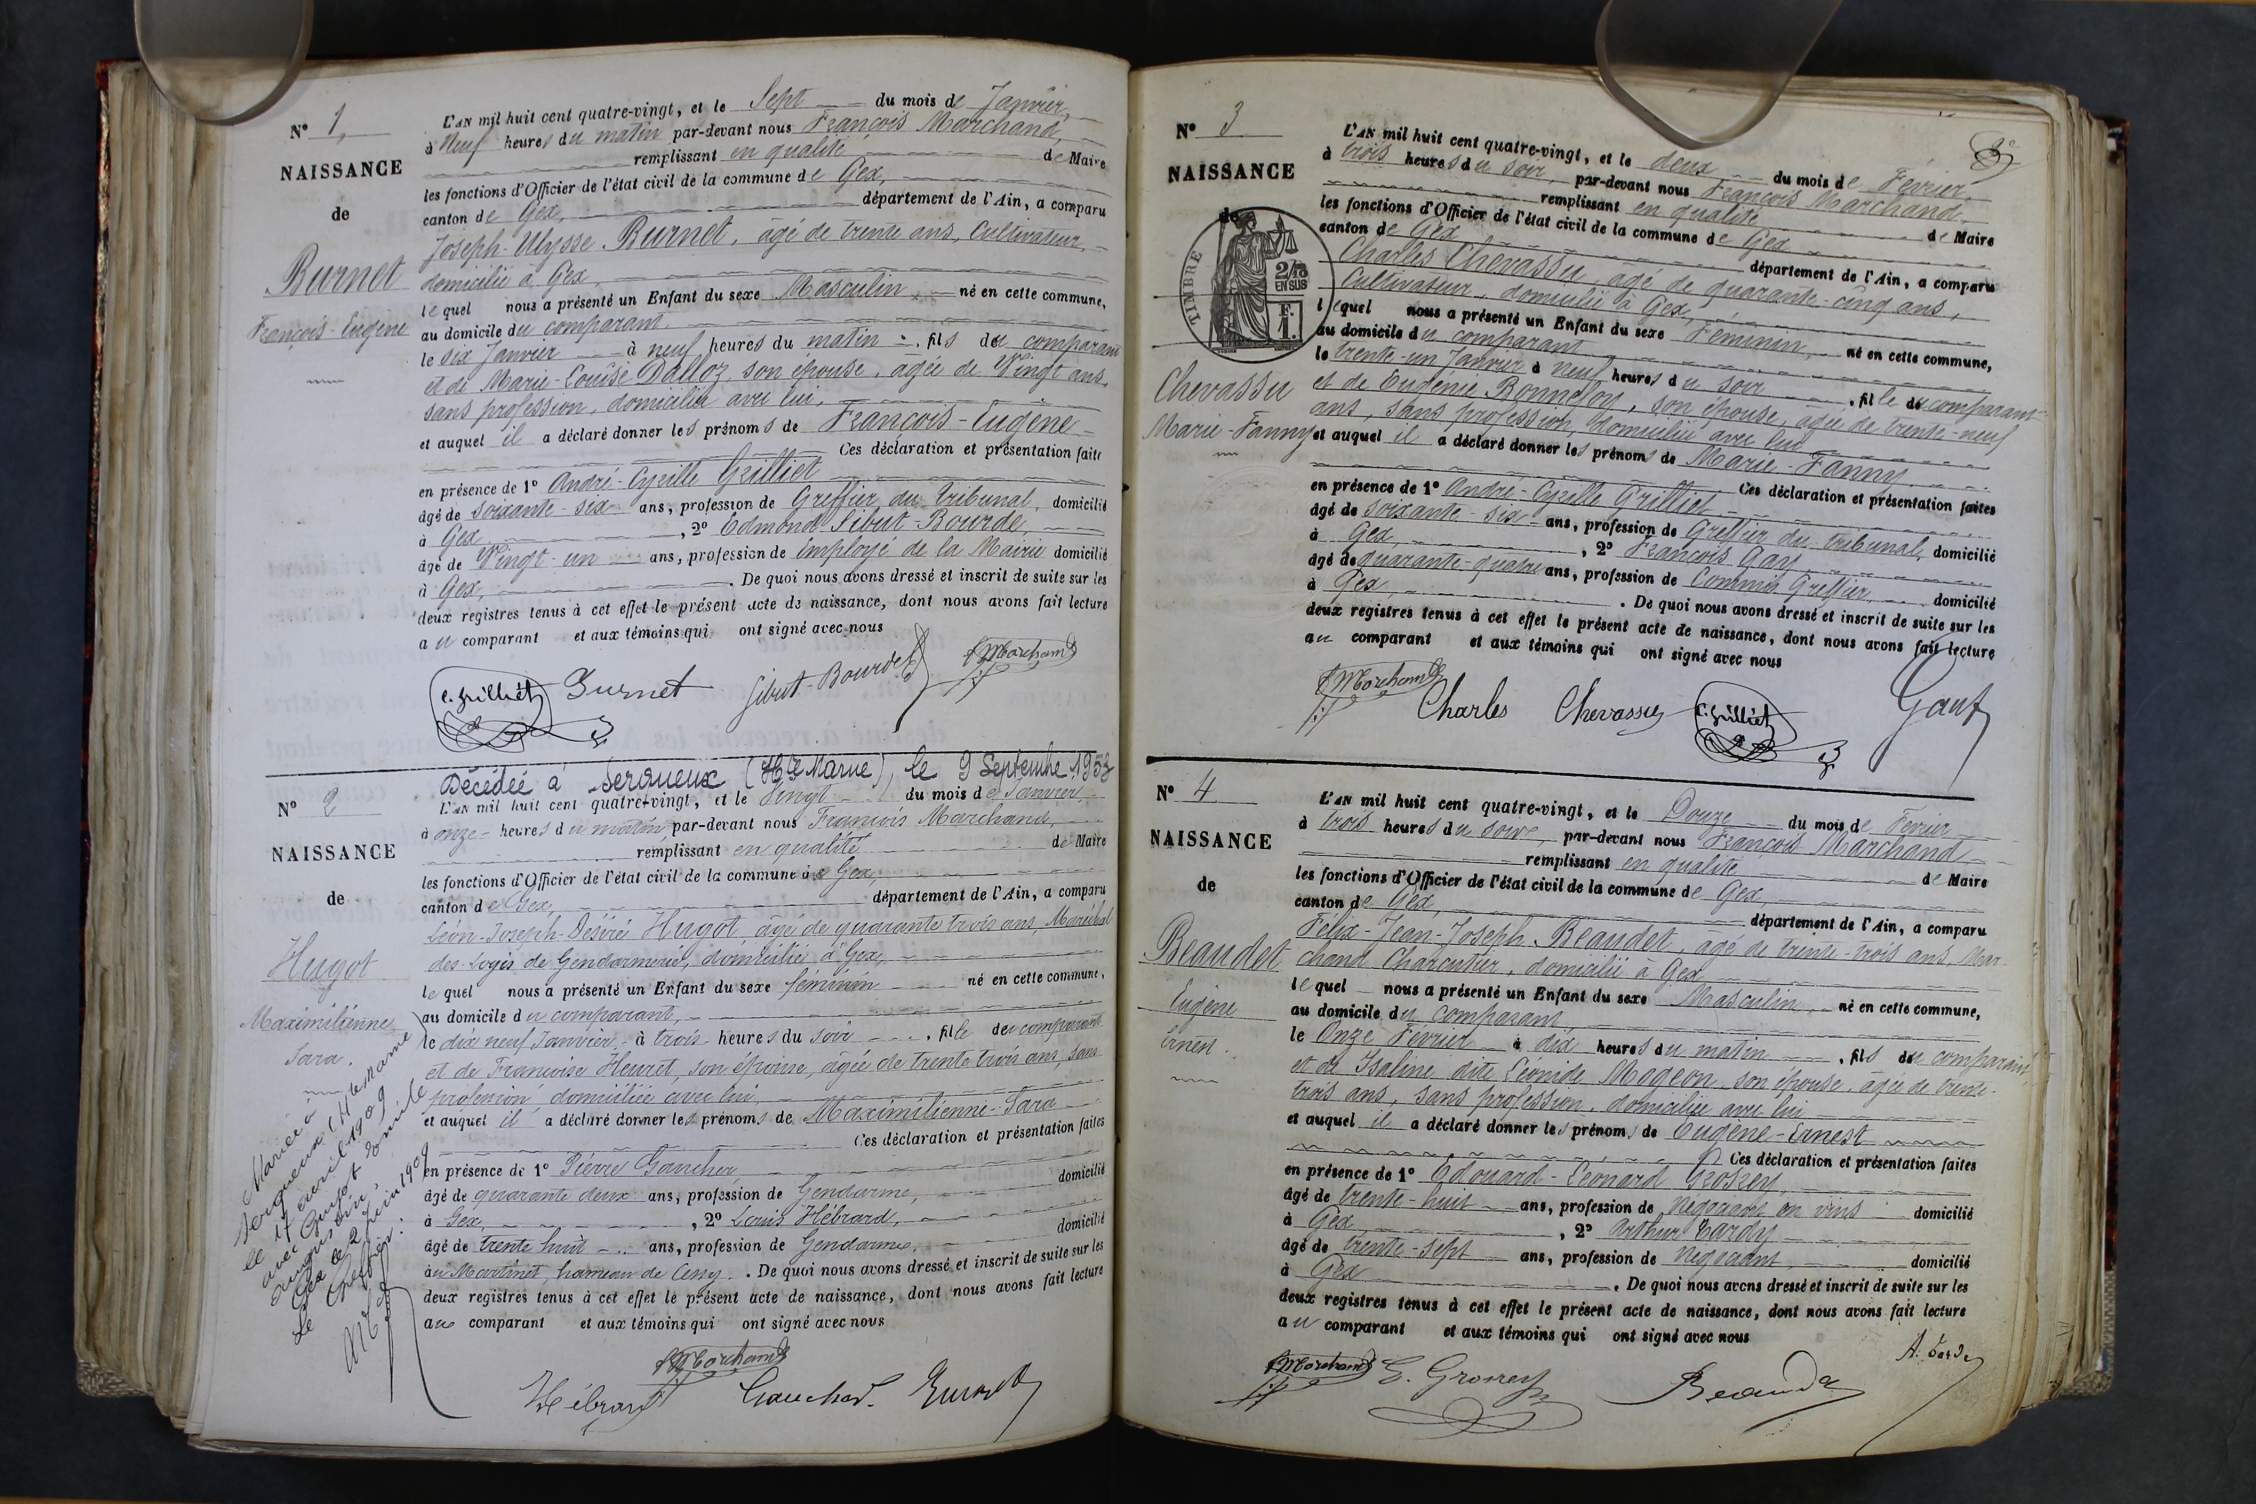 N° 1,
NAISSANCE
de
Burnet
François-Eugène
L'AN mil huit cent quatre-vingt, et le Sept du mois de Janvier,
à Neuf heures du matin par-devant nous François Marchand,
remplissant en qualité de Maire
les fonctions d'Officier de l'état civil de la commune de Gex,
canton de Gex, département de l'Ain, a comparu
Joseph-Ulysse Burnet, âgé de trente ans, Cultivateur,
domicilié à Gex,
lequel nous a présenté un Enfant du sexe Masculin, né en cette commune,
au domicile du comparant
le six Janvier à neuf heures du matin, fils du comparant
et de Marie-Louise Dalloz, son épouse, âgée de Vingt ans,
sans profession, domiciliée avec lui,
et auquel il a déclaré donner les prénoms de François-Eugène
Ces déclaration et présentation faite
en présence de 1° André-Cyrille Grilliet
âgé de soixante-six ans, profession de Greffier du tribunal, domicilié
à Gex, 2° Edmond Sibut-Bourde,
âgé de Vingt-un ans, profession de Employé de la Mairie domicilié
à Gex, . De quoi nous avons dressé et inscrit de suite sur les
deux registres tenus à cet effet le présent acte de naissance, dont nous avons fait lecture
au comparant et aux témoins qui ont signé avec nous
C. Grilliet Burnet Sibut-Bourde fMarchand
Décédée à Serqueux (Hte Marne), le 9 Septembre 1953
N° 2
NAISSANCE
de
Hugot
Maximilienne
Sara.
Mariée à
Serqueux (Hte Marne
le 17 avril 1909
avec Guyot Emile
Gex le 2 juin 1909
Le Greffier:
L'AN mil huit cent quatre-vingt, et le Vingt du mois de Janvier,
à onze heures du matin par-devant nous François Marchand,
remplissant en qualité de Maire
les fonctions d'Officier de l'état civil de la commune de Gex,
canton de Gex, département de l'Ain, a comparu
Léon-Joseph-Désiré Hugot, âgé de quarante trois ans, Maréchal
des logis de Gendarmerie, domicilié à Gex,
lequel nous a présenté un Enfant du sexe féminin né en cette commune,
au domicile du comparant,
le dix neuf Janvier à trois heures du soir, fille du comparant
et de Françoise Heuret, son épouse, âgée de trente trois ans, sans
profession domiciliée avec lui,
et auquel il a déclaré donner les prénoms de Maximilienne-Sara
Ces déclaration et présentation faites
en présence de 1° Pierre Gaucher,
âgé de quarante deux ans, profession de Gendarme, domicilié
à Gex, 2° Louis Hébrard,
âgé de trente huit ans, profession de Gendarme, domicilié
au Martinet, hameau de Cessy. De quoi nous avons dressé et inscrit de suite sur les
deux registres tenus à cet effet le présent acte de naissance, dont nous avons fait lecture
au comparant et aux témoins qui ont signé avec nous
fMarchand
Hébrard Gaucher
N° 3
NAISSANCE
de
TIMBRE
2/10
EN SUS
F.
1.
Chevassu
Marie-Fanny
L'AN mil huit cent quatre-vingt, et le deux du mois de Février,
à trois heures du soir, par-devant nous François Marchand
remplissant en qualité de Maire
les fonctions d'Officier de l'état civil de la commune de Gex
canton de Gex département de l'Ain, a comparu
Charles Chevassu, âgé de quarante-cinq ans,
Cultivateur, domicilié à Gex,
lequel nous a présenté un Enfant du sexe Féminin, né en cette commune,
au domicile du comparant
le trente-un Janvier à neuf heures du soir, fille du comparant
et de Eugénie Bonnefoy, son épouse, âgée de trente-neuf
ans, sans profession, domiciliée avec lui
et auquel il a déclaré donner les prénoms de Marie-Fanny
Ces déclaration et présentation faites
en présence de 1° André-Cyrille Grilliet
âgé de soixante-six ans, profession de Greffier du tribunal, domicilié
à Gex, 2° François Gay
âgé de quarante-quatre ans, profession de Commis Greffier domicilié
à Gex, . De quoi nous avons dressé et inscrit de suite sur les
deux registres tenus à cet effet le présent acte de naissance, dont nous avons fait lecture
au comparant et aux témoins qui ont signé avec nous
fMarchand Charles Chevassu C. Grilliet
N° 4
NAISSANCE
de
Beaudet
Eugène
Ernest.
L'AN mil huit cent quatre-vingt, et le Douze du mois de Février
à trois heures du soir, par-devant nous François Marchand
remplissant en qualité de Maire
les fonctions d'Officier de l'état civil de la commune de Gex,
canton de Gex, département de l'Ain, a comparu
Félix-Jean-Joseph Beaudet, âgé de trente-trois ans, Mar-
chand Charcutier, domicilié à Gex
lequel nous a présenté un Enfant du sexe Masculin, né en cette commune,
au domicile du comparant
le Onze Février à dix heures du matin, fils du comparant
et de Isaline dite Léonide Mogeon, son épouse, âgée de trente-
trois ans, sans profession, domiciliée avec lui
et auquel il a déclaré donner les prénoms de Eugène-Ernest
Ces déclaration et présentation faites
en présence de 1° Edouard-Léonard Grosrey,
âgé de trente-huit ans, profession de Négociant en vins domicilié
à Gex, 2° Arthur Tardy
âgé de trente-sept ans, profession de Négociant, domicilié
à Gex. De quoi nous avons dressé et inscrit de suite sur les
deux registres tenus à cet effet le présent acte de naissance, dont nous avons fait lecture
au comparant et aux témoins qui ont signé avec nous
fMarchand E. Grosrey Beaudet A. Tardy